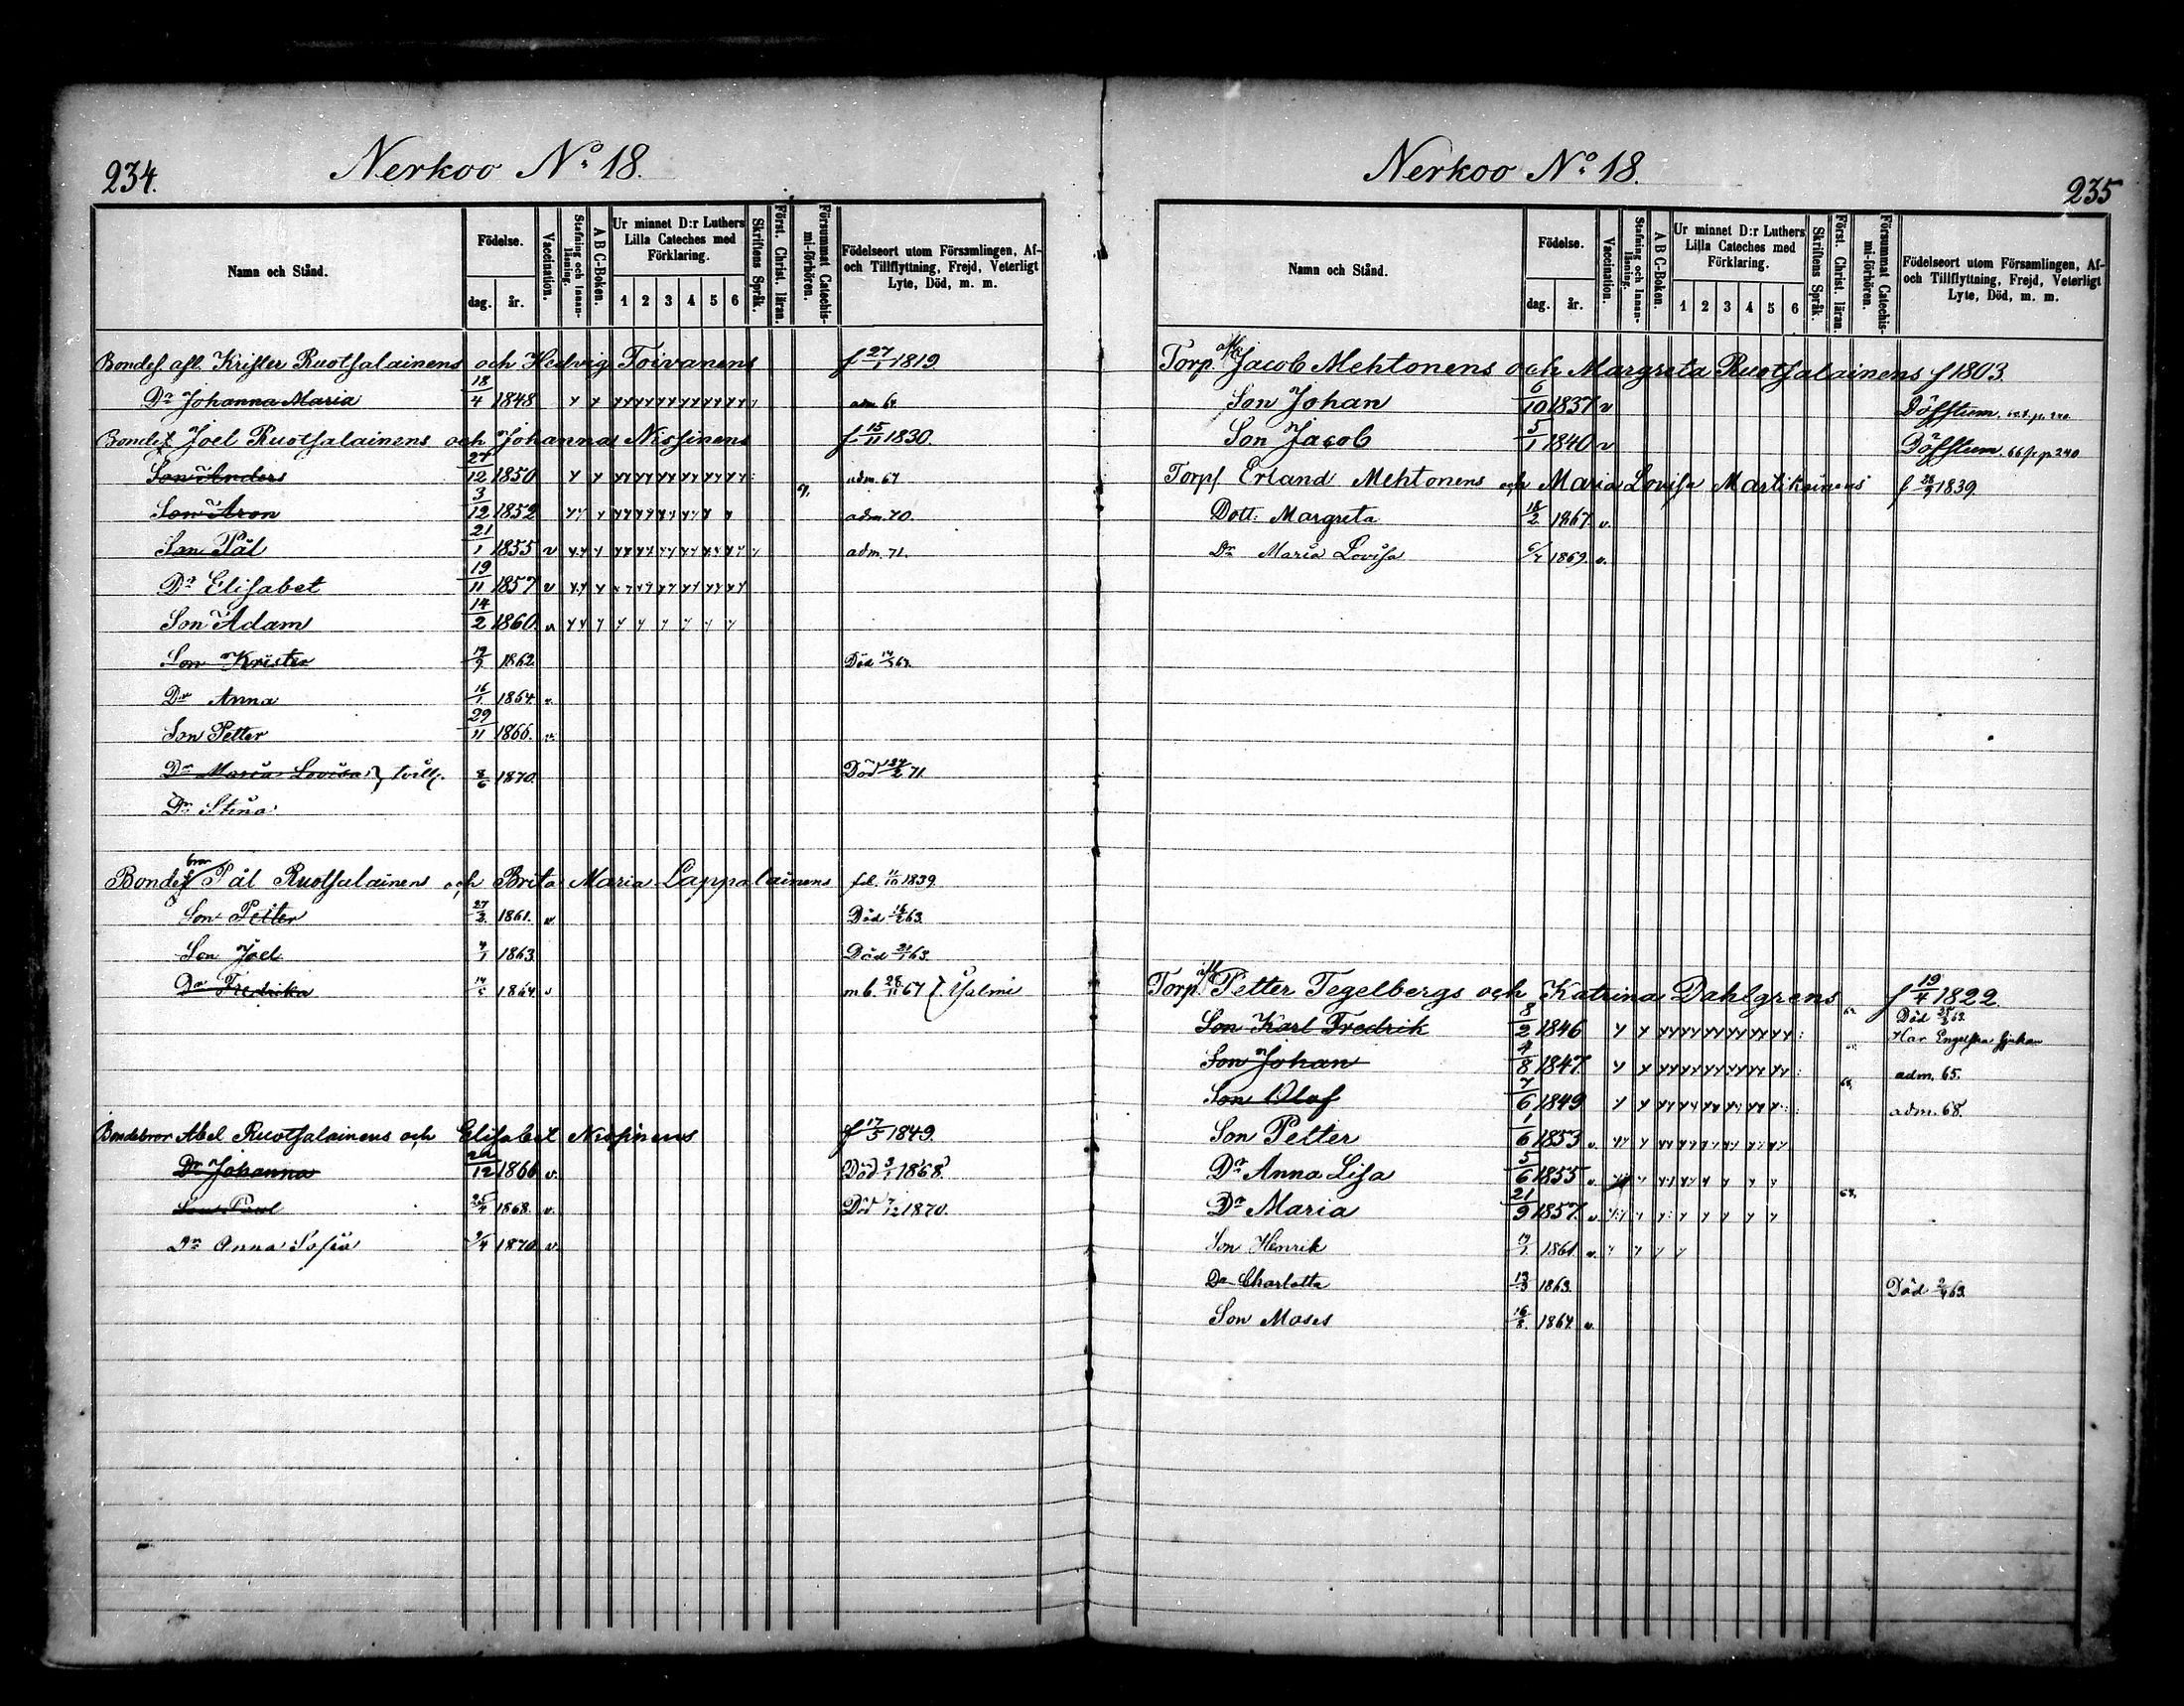 234.
Nerkoo No 18.
Namn och Stånd.
Födelse.
dag.
år.
Vaccination.
Stafning och Innan-läsning.
A B C-Boken.
Ur minnet D:r Luthers Lilla Cateches med Förklaring.
1 2 3 4 5 6
Skriftens Språk.
Först. Christ. läran.
Försummat Catechis-mi-förhören.
Födelseort utom Församlingen, Af- och Tillflyttning, Frejd, Veterligt Lyte, Död, m. m.
Bondes afl. Krister Ruotsalainens och Hedvig Toivanens f 27/1 1819.
Dr Johanna Maria 18/4 1848
Bondes Joel Ruotsalainens och Johanna Nissinens f. 15/11 1830.
Son Anders 27/12 1850 adm. 67
Son Aron 3/12 1852 adm. 70.
Son Pål 21/1 1855 v adm. 71.
Dr Elisabet 19/11 1857 v
Son Adam 14/2 1860. v
Son Krister 1862. Död
Dr Anna 16/1 1864. v.
Son Petter 29/11 1866. v.
Dr Maria Lovisa } tvill. 8/6 1870. Död 71.
Dr Stina
Bondes bror Pål Ruotsalainens och Brita Maria Lappalainens 1839.
Son Petter 27/2 1861. v Död 63.
Son Joel 1863. Död 63.
Dr Fredrika 1864 v m.b. 28/11 67
Bondebror Abel Ruotsalainens och Elisabet Nissinens f 17/5 1849.
Dr Johanna 1866 v. Död 3/1 1868.
Son Paul 1868. v. Död 7/12 1870.
Dr Anna Sofia 1870 v.
Nerkoo No 18.
235
Namn och Stånd.
Födelse.
dag.
år.
Vaccination.
Stafning och Innan-läsning.
A B C-Boken.
Ur minnet D:r Luthers Lilla Cateches med Förklaring.
1 2 3 4 5 6
Skriftens Språk.
Först. Christ. läran.
Försummat Catechis-mi-förhören.
Födelseort utom Församlingen, Af- och Tillflyttning, Frejd, Veterligt Lyte, Död, m. m.
Torp. afl. Jacob Mehtonens och Margreta Ruotsalainens f 1803.
Son Johan 6/10 1837 v Döfstum.
Son Jacob 5/1 1840 v Döfstum.
Torps Erland Mehtonens och Maria Lovisa Martikainens 1839.
Dott. Margreta 18/2 1867. v.
Dr Maria Lovisa 1869. v.
Torp. afl. Petter Tegelbergs och Katrina Dahlgrens f 19/4 1822.
Son Karl Fredrik 8/2 1846 Död
Har Engelska sjukan
Son Johan 4/8 1847 adm. 65.
Son Olof 7/6 1849 adm. 68.
Son Petter 1/6 1853 v.
Dr Anna Lisa 5/6 1855 v.
Dr Maria 21/9 1857. v.
Son Henrik 1861. v.
Dr Charlotta 1863. Död 63.
Son Moses 16/8 1864. v.